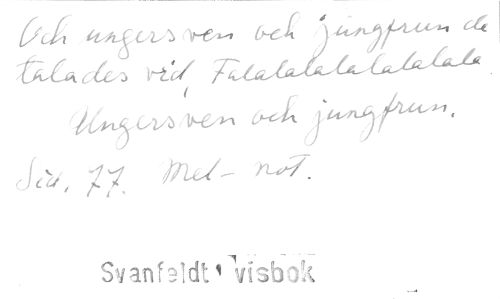 Och ungersven och jungfrun de
talades vid, Falalalalalalalala
Ungersven och jungfrun.
Sid. 77. Mel-not.
Svanfeldt visbok